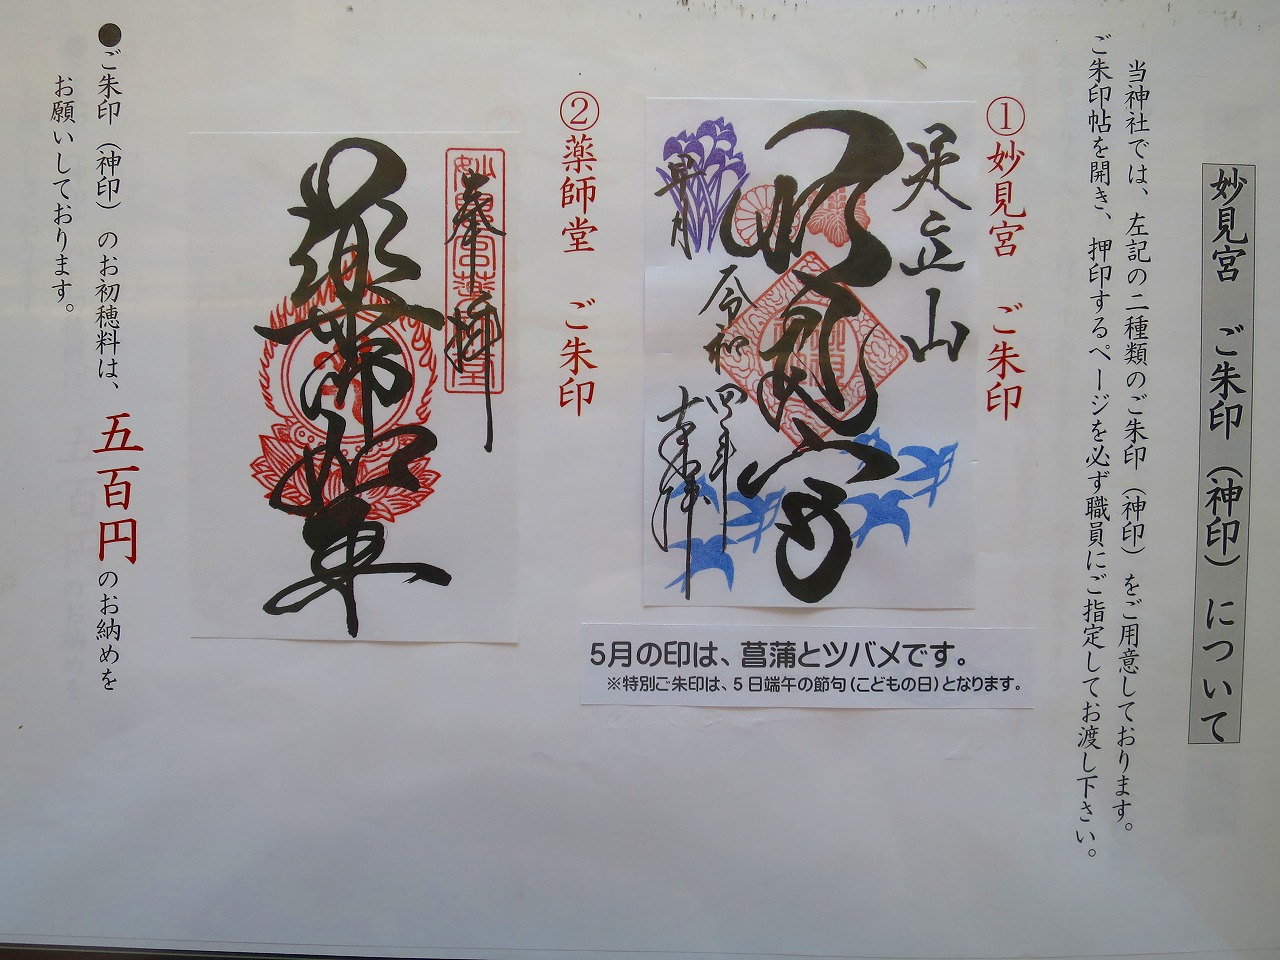 妙見宮 ご朱印（神印）について
当神社では、左記の二種類のご朱印（神印）をご用意しております。
ご朱印帖を開き、押印するページを必ず職員にご指定してお渡し下さい。
①妙見宮 ご朱印
足立山
妙見宮
皐月
令和四年
奉拝
5月の印は、菖蒲とツバメです。
※特別ご朱印は、5日端午の節句（こどもの日）となります。
②薬師堂 ご朱印
奉拝
薬師如来
●ご朱印（神印）のお初穂料は、五百円のお納めを
お願いしております。